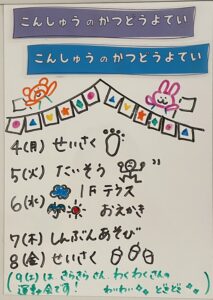 こんしゅうのかつどうよてい
こんしゅうのかつどうよてい
4(月) せいさく
5(火) たいそう
1Fテラス
6(水)
おえかき
7(木) しんぶんあそび
8(金) せいさく
(9(土)は きらきらさん、わくわくさんの
運動会です! わいわい どきどき)